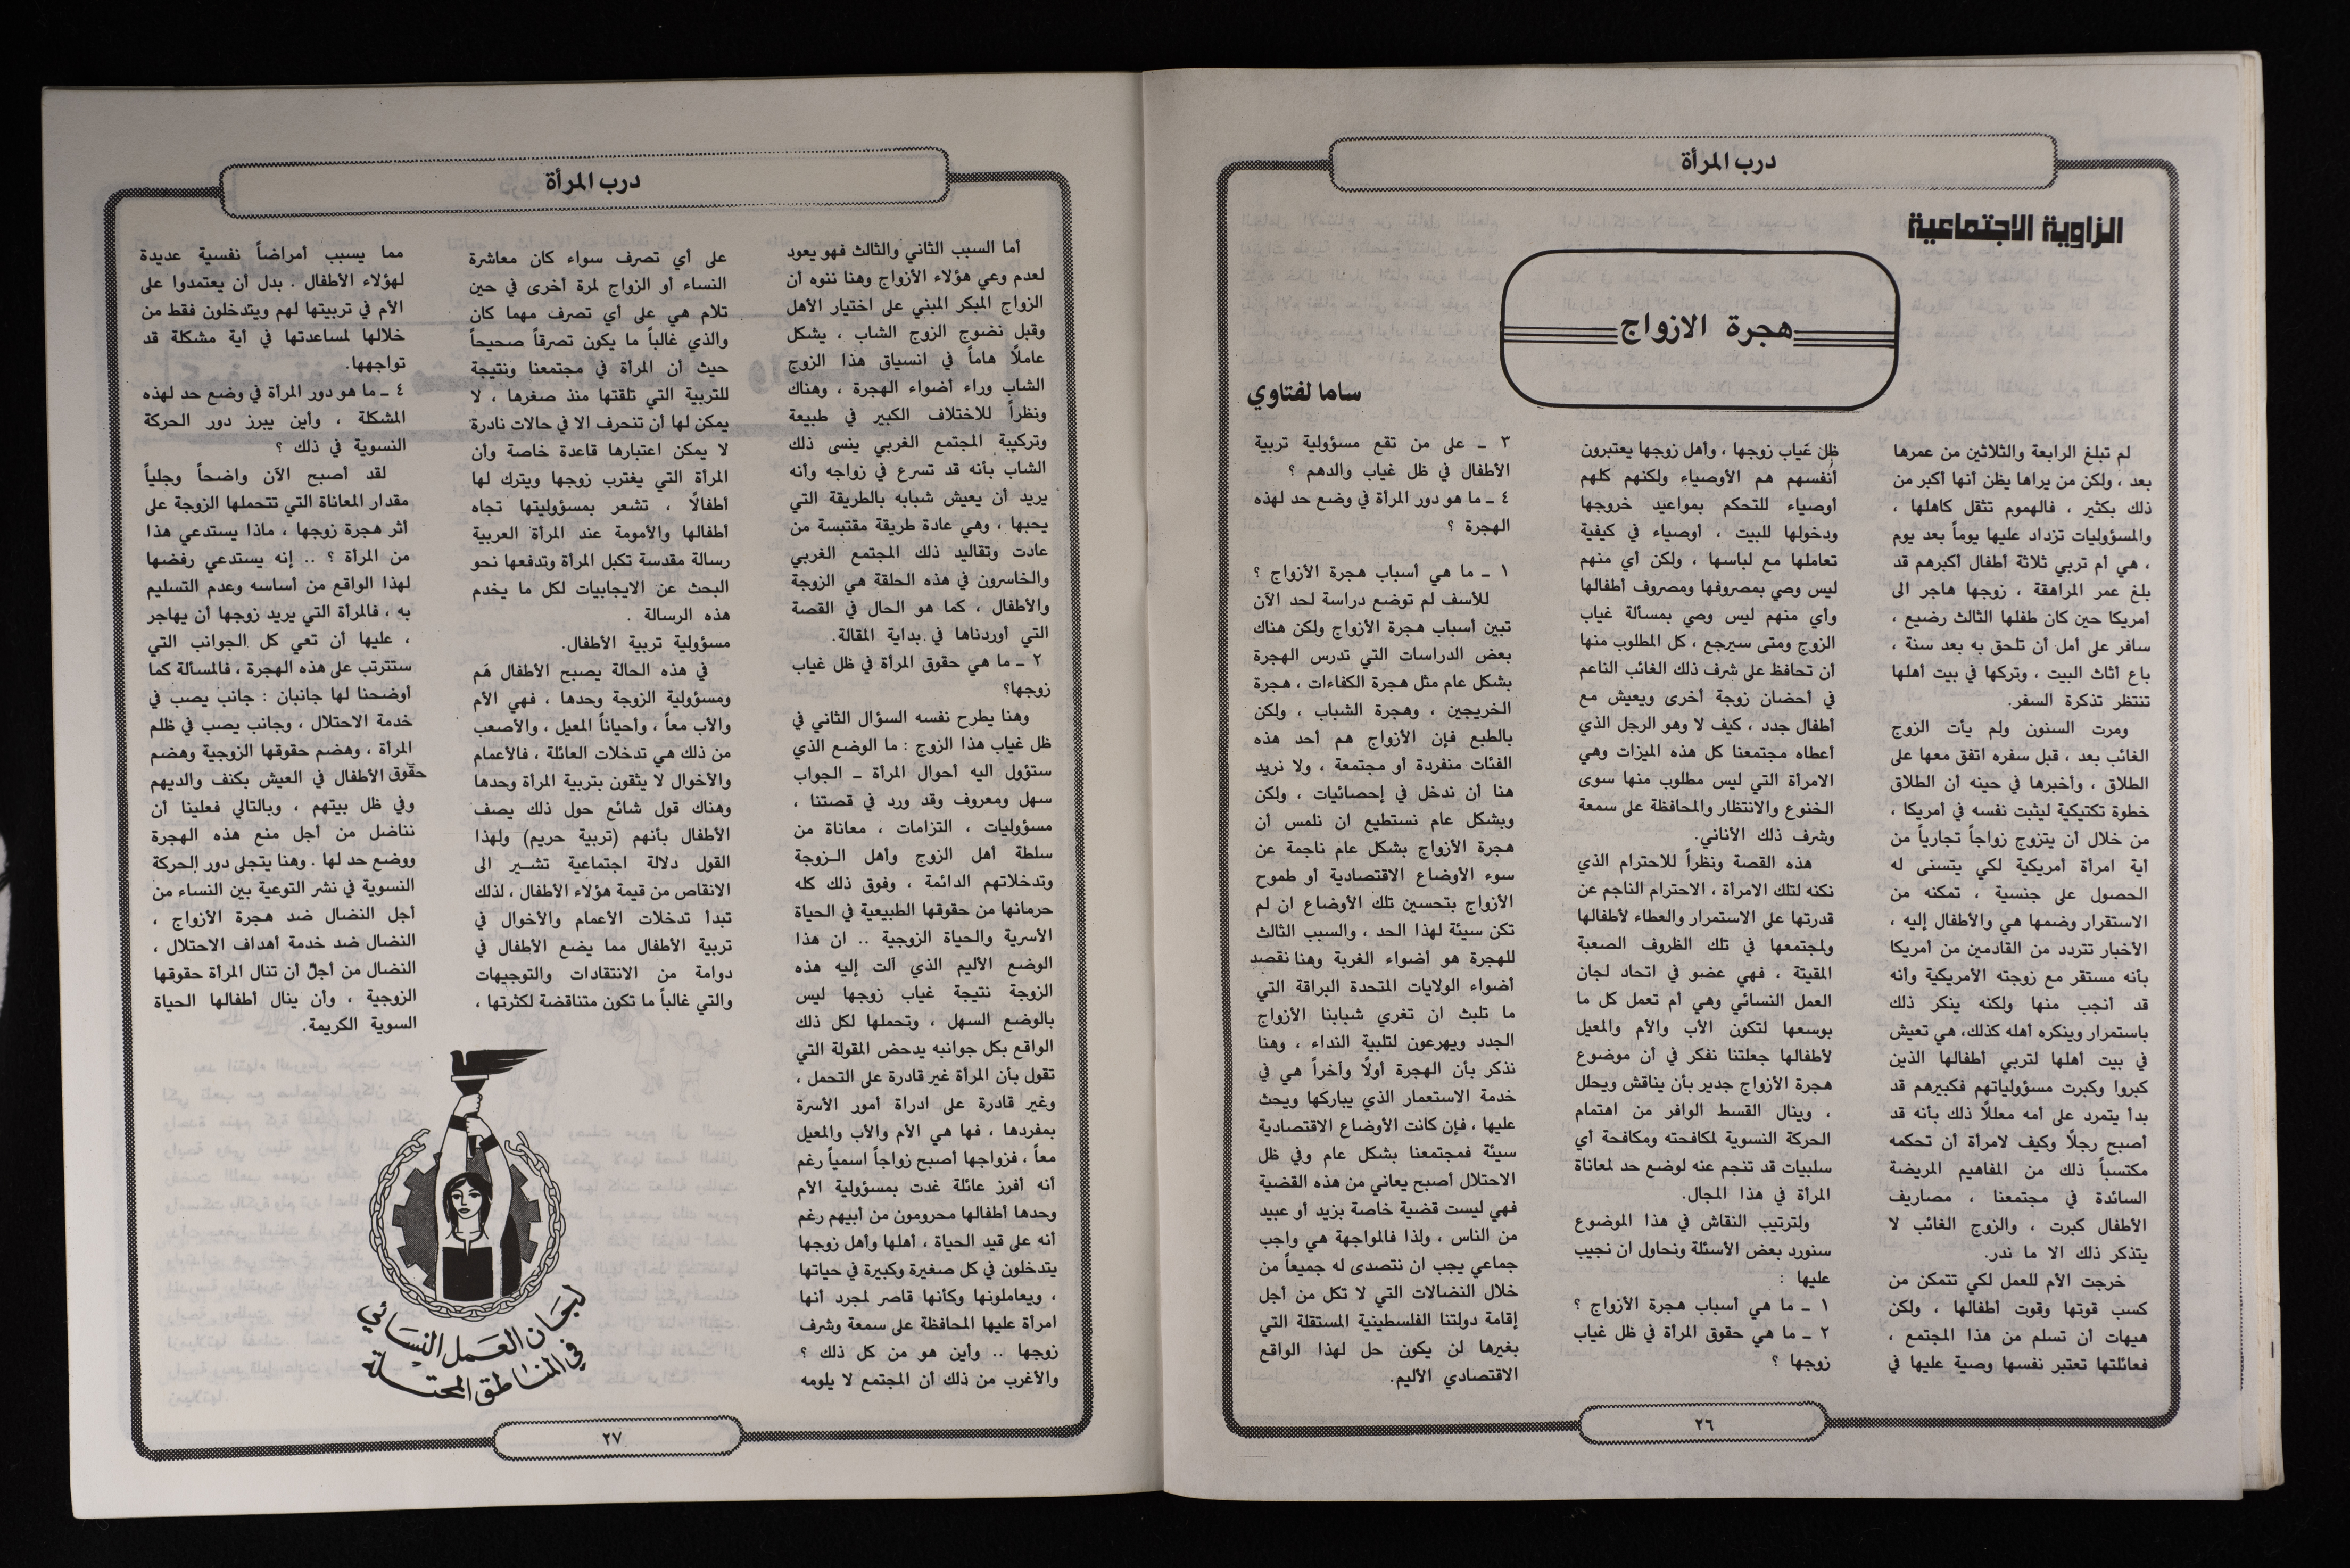 درب المرأة
الزاوية الاجتماعية
هجرة الازواج
ساما لفتاوي
لم تبلغ الرابعة والثلاثين من عمرها
بعد ، ولكن من يراها يظن أنها أكبر من
ذلك بكثير ، فالهموم تثقل كاهلها ،
والمسؤوليات تزداد عليها يوماً بعد يوم
، هي أم تربي ثلاثة أطفال أكبرهم قد
بلغ عمر المراهقة ، زوجها هاجر الى
أمريكا حين كان طفلها الثالث رضيع ،
سافر على أمل أن تلحق به بعد سنة ،
باع أثاث البيت ، وتركها في بيت أهلها
تنتظر تذكرة السفر.
ومرت السنون ولم يأت الزوج
الغائب بعد ، قبل سفره اتفق معها على
الطلاق ، وأخبرها في حينه أن الطلاق
خطوة تكتيكية ليثبت نفسه في أمريكا ،
من خلال أن يتزوج زواجاً تجارياً من
أية امرأة أمريكية لكي يتسنى له
الحصول على جنسية ، تمكنه من
الاستقرار وضمها هي والأطفال إليه ،
الأخبار تتردد من القادمين من أمريكا
بأنه مستقر مع زوجته الأمريكية وأنه
قد أنجب منها ولكنه ينكر ذلك
باستمرار وينكره أهله كذلك، هي تعيش
في بيت أهلها لتربي أطفالها الذين
كبروا وكبرت مسؤولياتهم فكبيرهم قد
بدأ يتمرد على أمه معللاً ذلك بأنه قد
أصبح رجلاً وكيف لامرأة أن تحكمه
مكتسباً ذلك من المفاهيم المريضة
السائدة في مجتمعنا ، مصاريف
الأطفال كبرت ، والزوج الغائب لا
يتذكر ذلك الا ما ندر.
خرجت الأم للعمل لكي تتمكن من
كسب قوتها وقوت أطفالها ، ولكن
هيهات أن تسلم من هذا المجتمع ،
فعائلتها تعتبر نفسها وصية عليها في
ظل غياب زوجها ، وأهل زوجها يعتبرون
أنفسهم هم الأوصياء ولكنهم كلهم
أوصياء للتحكم بمواعيد خروجها
ودخولها للبيت ، أوصياء في كيفية
تعاملها مع لباسها ، ولكن أي منهم
ليس وصي بمصروفها ومصروف أطفالها
وأي منهم ليس وصي بمسألة غياب
الزوج ومتى سيرجع ، كل المطلوب منها
أن تحافظ على شرف ذلك الغائب الناعم
في أحضان زوجة أخرى ويعيش مع
أطفال جدد ، كيف لا وهو الرجل الذي
أعطاه مجتمعنا كل هذه الميزات وهي
الامرأة التي ليس مطلوب منها سوى
الخنوع والانتظار والمحافظة على سمعة
وشرف ذلك الأناني.
هذه القصة ونظراً للاحترام الذي
نكنه لتلك الامرأة ، الاحترام الناجم عن
قدرتها على الاستمرار والعطاء لأطفالها
ولمجتمعها في تلك الظروف الصعبة
المقيتة ، فهي عضو في اتحاد لجان
العمل النسائي وهي أم تعمل كل ما
بوسعها لتكون الأب والأم والمعيل
لأطفالها جعلتنا نفكر في أن موضوع
هجرة الأزواج جدير بأن يناقش ويحلل
، وينال القسط الوافر من اهتمام
الحركة النسوية لمكافحته ومكافحة أي
سلبيات قد تنجم عنه لوضع حد لمعاناة
المرأة في هذا المجال.
ولترتيب النقاش في هذا الموضوع
سنورد بعض الأسئلة ونحاول ان نجيب
عليها :
١ ـ ما هي أسباب هجرة الأزواج ؟
٢ ـ ما هي حقوق المرأة في ظل غياب
زوجها ؟
٣ ـ على من تقع مسؤولية تربية
الأطفال في ظل غياب والدهم ؟
٤ ـ ما هو دور المرأة في وضع حد لهذه
الهجرة ؟
١ ـ ما هي أسباب هجرة الأزواج ؟
للأسف لم توضع دراسة لحد الآن
تبين أسباب هجرة الأزواج ولكن هناك
بعض الدراسات التي تدرس الهجرة
بشكل عام مثل هجرة الكفاءات ، هجرة
الخريجين ، وهجرة الشباب ، ولكن
بالطبع فإن الأزواج هم أحد هذه
الفئات منفردة أو مجتمعة ، ولا نريد
هنا أن ندخل في إحصائيات ، ولكن
وبشكل عام نستطيع ان نلمس أن
هجرة الأزواج بشكل عام ناجمة عن
سوء الأوضاع الاقتصادية أو طموح
الأزواج بتحسين تلك الأوضاع ان لم
تكن سيئة لهذا الحد ، والسبب الثالث
للهجرة هو أضواء الغربة وهنا نقصد
أضواء الولايات المتحدة البراقة التي
ما تلبث ان تغري شبابنا الأزواج
الجدد ويهرعون لتلبية النداء ، وهنا
نذكر بأن الهجرة أولًا وآخراً هي في
خدمة الاستعمار الذي يباركها ويحث
عليها ، فإن كانت الأوضاع الاقتصادية
سيئة فمجتمعنا بشكل عام وفي ظل
الاحتلال أصبح يعاني من هذه القضية
فهي ليست قضية خاصة بزيد أو عبيد
من الناس ، ولذا فالمواجهة هي واجب
جماعي يجب ان نتصدى له جميعاً من
خلال النضالات التي لا تكل من أجل
إقامة دولتنا الفلسطينية المستقلة التي
بغيرها لن يكون حل لهذا الواقع
الاقتصادي الأليم.
٢٦
درب المرأة
أما السبب الثاني والثالث فهو يعود
لعدم وعي هؤلاء الأزواج وهنا ننوه أن
الزواج المبكر المبني على اختيار الأهل
وقبل نضوج الزوج الشاب ، يشكل
عاملًا هاماً في انسياق هذا الزوج
الشاب وراء أضواء الهجرة ، وهناك
ونظراً للاختلاف الكبير في طبيعة
وتركيبة المجتمع الغربي ينسى ذلك
الشاب بأنه قد تسرع في زواجه وأنه
يريد أن يعيش شبابه بالطريقة التي
يحبها ، وهي عادة طريقة مقتبسة من
عادت وتقاليد ذلك المجتمع الغربي
والخاسرون في هذه الحلقة هي الزوجة
والأطفال ، كما هو الحال في القصة
التي أوردناها في بداية المقالة.
٢ ـ ما هي حقوق المرأة في ظل غياب
زوجها؟
وهنا يطرح نفسه السؤال الثاني في
ظل غياب هذا الزوج : ما الوضع الذي
ستؤول اليه أحوال المرأة ـ الجواب
سهل ومعروف وقد ورد في قصتنا ،
مسؤوليات ، التزامات ، معاناة من
سلطة أهل الزوج وأهل الـزوجة
وتدخلاتهم الدائمة ، وفوق ذلك كله
حرمانها من حقوقها الطبيعية في الحياة
الأسرية والحياة الزوجية .. ان هذا
الوضع الأليم الذي آلت إليه هذه
الزوجة نتيجة غياب زوجها ليس
بالوضع السهل ، وتحملها لكل ذلك
الواقع بكل جوانبه يدحض المقولة التي
تقول بأن المرأة غير قادرة على التحمل ،
وغير قادرة على ادراة أمور الأسرة
بمفردها ، فها هي الأم والأب والمعيل
معاً ، فزواجها أصبح زواجاً اسمياً رغم
أنه أفرز عائلة غدت بمسؤولية الأم
وحدها أطفالها محرومون من أبيهم رغم
أنه على قيد الحياة ، أهلها وأهل زوجها
يتدخلون في كل صغيرة وكبيرة في حياتها
، ويعاملونها وكأنها قاصر لمجرد أنها
امرأة عليها المحافظة على سمعة وشرف
زوجها .. وأين هو من كل ذلك ؟
والأغرب من ذلك أن المجتمع لا يلومه
على أي تصرف سواء كان معاشرة
النساء أو الزواج لمرة أخرى في حين
تلام هي على أي تصرف مهما كان
والذي غالباً ما يكون تصرقاً صحيحاً
حيث أن المرأة في مجتمعنا ونتيجة
للتربية التي تلقتها منذ صغرها ، لا
يمكن لها أن تنحرف الا في حالات نادرة
لا يمكن اعتبارها قاعدة خاصة وأن
المرأة التي يغترب زوجها ويترك لها
أطفالًا ، تشعر بمسؤوليتها تجاه
أطفالها والأمومة عند المرأة العربية
رسالة مقدسة تكبل المرأة وتدفعها نحو
البحث عن الايجابيات لكل ما يخدم
هذه الرسالة .
مسؤولية تربية الأطفال.
في هذه الحالة يصبح الأطفال هَم
ومسؤولية الزوجة وحدها ، فهي الأم
والأب معاً ، وأحياناً المعيل ، والأصعب
من ذلك هي تدخلات العائلة ، فالأعمام
والأخوال لا يثقون بتربية المرأة وحدها
وهناك قول شائع حول ذلك يصف
الأطفال بأنهم (تربية حريم) ولهذا
القول دلالة اجتماعية تشـير الى
الانقاص من قيمة هؤلاء الأطفال ، لذلك
تبدأ تدخلات الأعمام والأخوال في
تربية الأطفال مما يضع الأطفال في
دوامة من الانتقادات والتوجيهات
والتي غالباً ما تكون متناقضة لكثرتها ،
مما يسبب أمراضاً نفسية عديدة
لهؤلاء الأطفال . بدل أن يعتمدوا على
الأم في تربيتها لهم ويتدخلون فقط من
خلالها لمساعدتها في أية مشكلة قد
تواجهها.
٤ ـ ما هو دور المرأة في وضع حد لهذه
المشكلة ، وأين يبرز دور الحركة
النسوية في ذلك ؟
لقد أصبح الآن واضحاً وجلياً
مقدار المعاناة التي تتحملها الزوجة على
أثر هجرة زوجها ، ماذا يستدعي هذا
من المرأة ؟ .. إنه يستدعي رفضها
لهذا الواقع من أساسه وعدم التسليم
به ، فالمرأة التي يريد زوجها أن يهاجر
، عليها أن تعي كل الجوانب التي
ستترتب على هذه الهجرة ، فالمسألة كما
أوضحنا لها جانبان : جانب يصب في
خدمة الاحتلال ، وجانب يصب في ظلم
المرأة ، وهضم حقوقها الزوجية وهضم
حقوق الأطفال في العيش بكنف والديهم
وفي ظل بيتهم ، وبالتالي فعلينا أن
نناضل من أجل منع هذه الهجرة
ووضع حد لها . وهنا يتجلى دور الحركة
النسوية في نشر التوعية بين النساء من
أجل النضال ضد هجرة الأزواج ،
النضال ضد خدمة أهداف الاحتلال ،
النضال من أجل أن تنال المرأة حقوقها
الزوجية ، وأن ينال أطفالها الحياة
السوية الكريمة.
لجان العمل النسائي
في المناطق المحتلة
٢٧